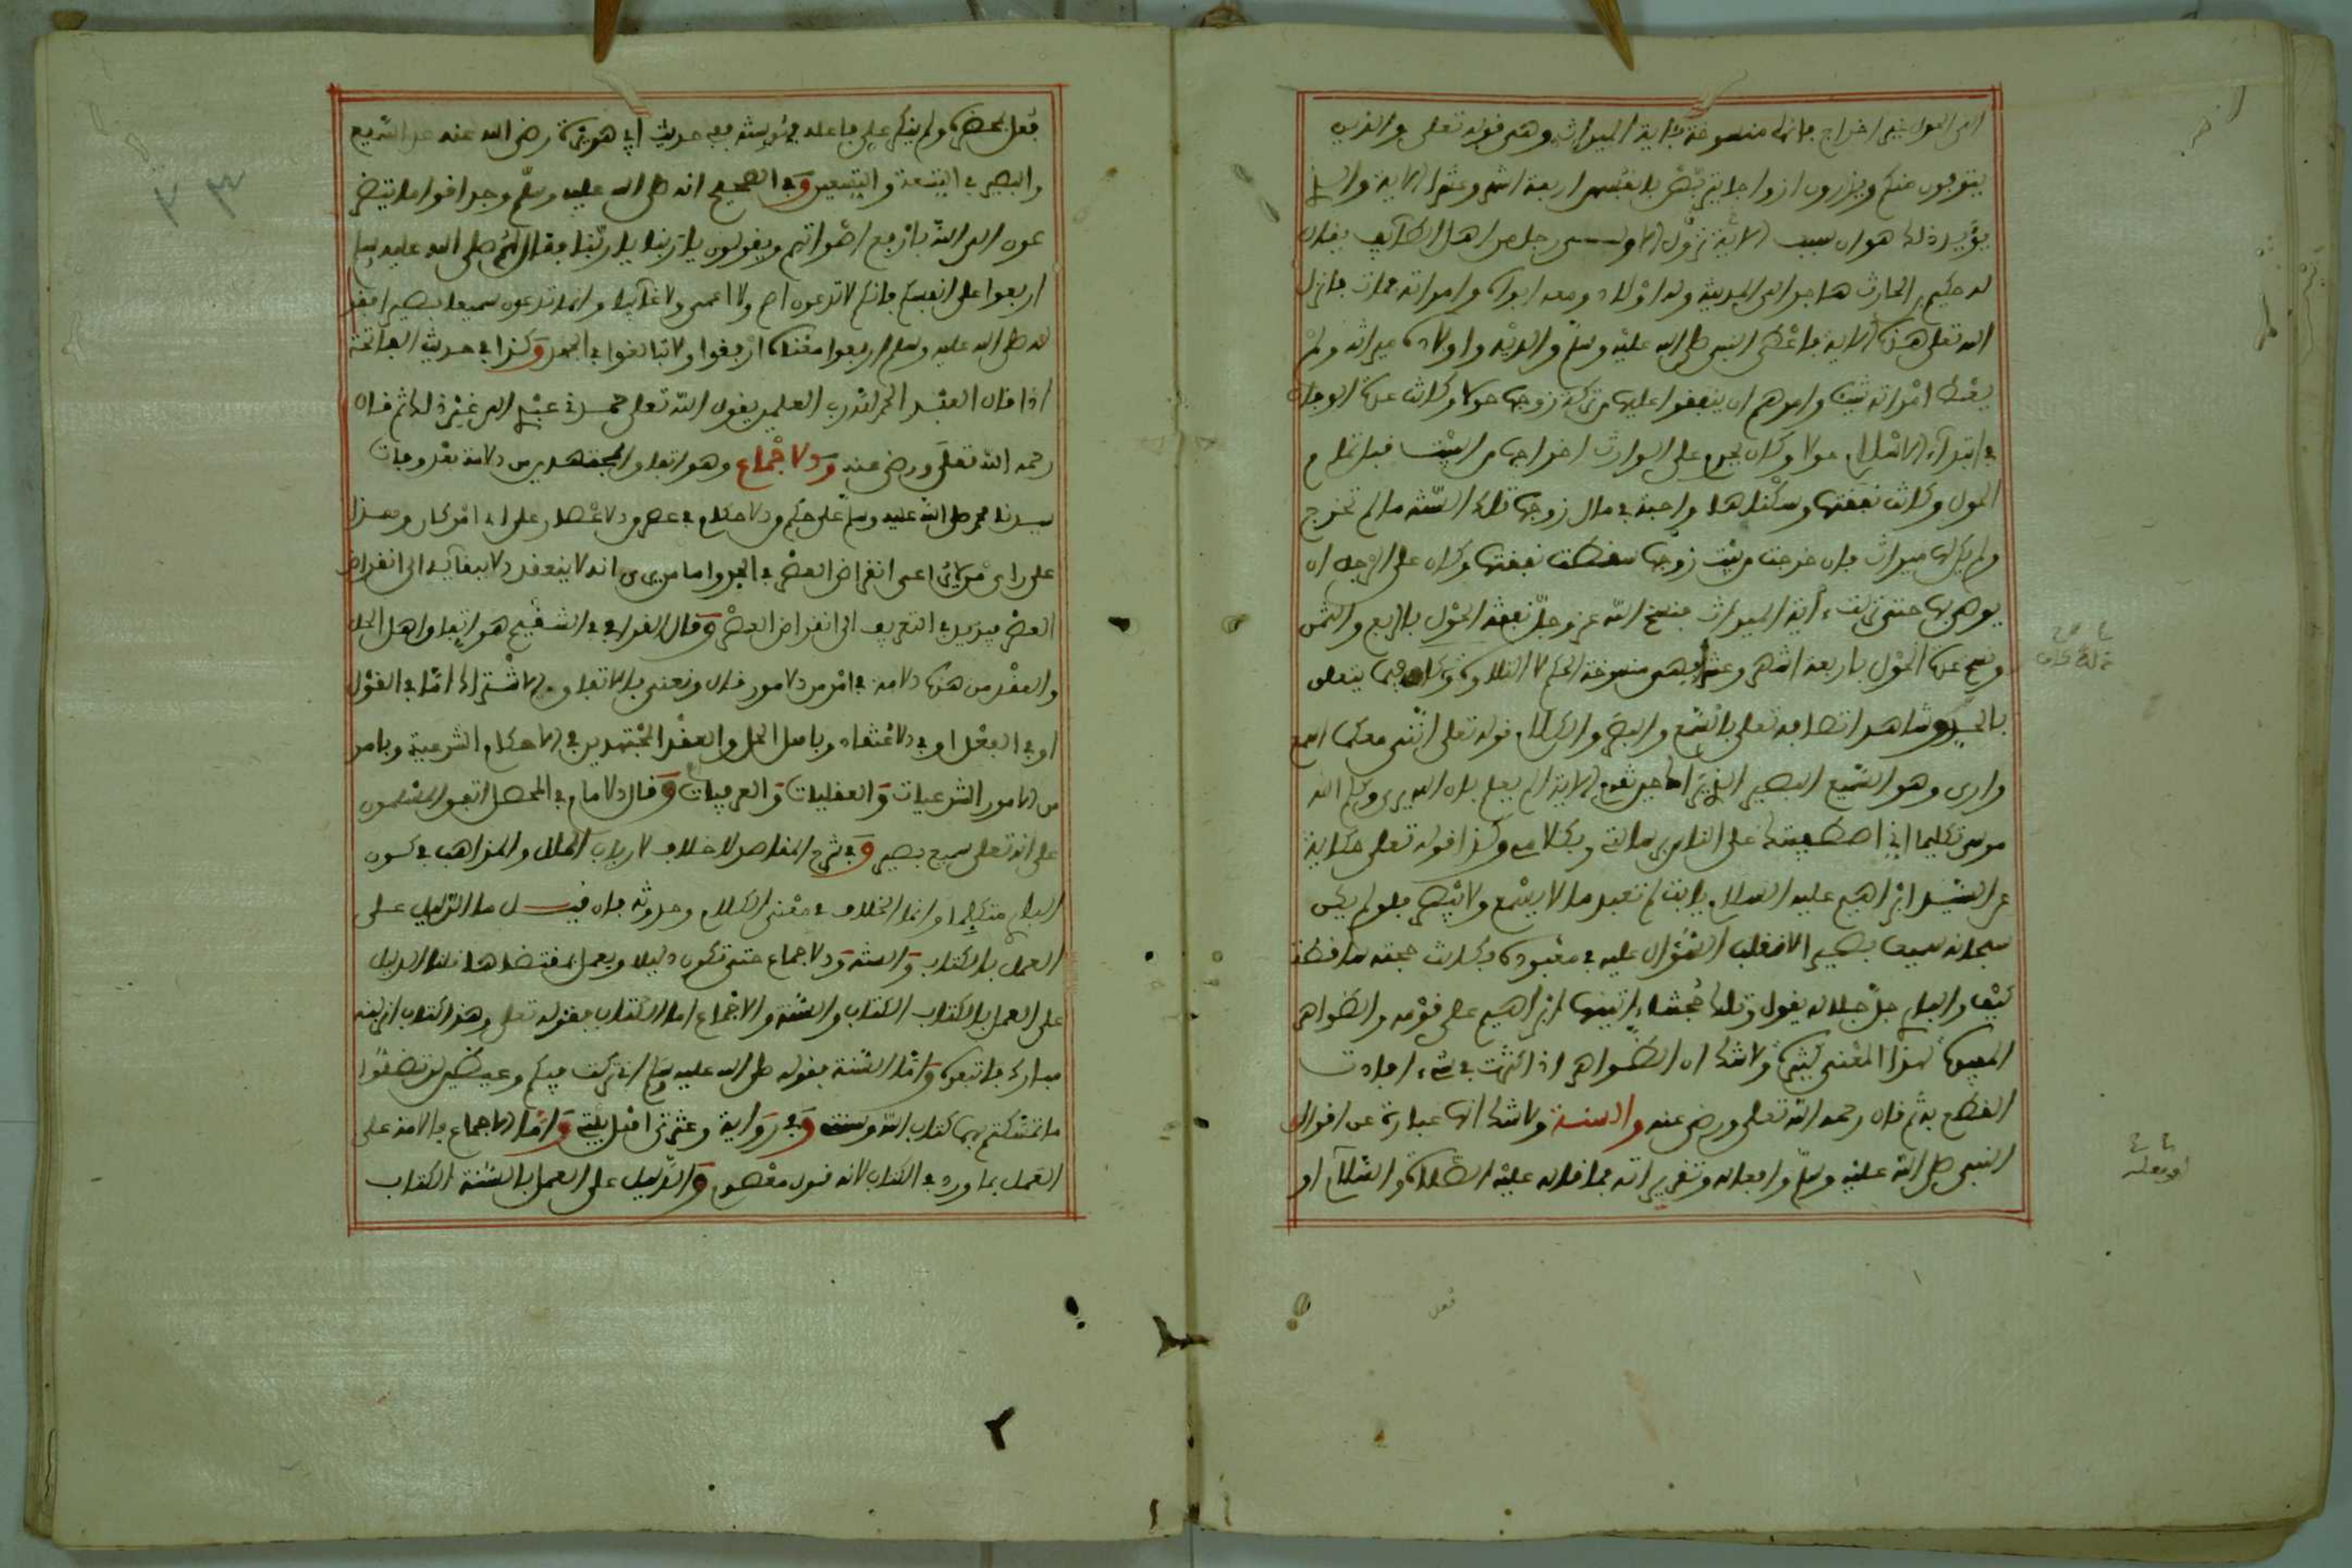 الى الحول غير اخراج فانها منسوخة بآية الميراث وهي قوله تعلى والذين
يتوفون منكم ويذرون ازواجا يتربصن بانفسهن اربعة اشهر وعشرا الآية والذي
يؤيد ذلك هو ان سبب الآية نزول الاولى رجل من اهل الطآيف يقال
له حكيم بن الحارث هاجر الى المدينة وله اولاد ومعه ابواه وامراته فمات فانزل
الله تعلى هذه الآية فاعطى النبي صلى الله عليه وسلم والديه واولاده ميراثه ولم
يعط امراته شيئا وامرهم ان ينفقوا عليها من تركة زوجها حولا وكانت عدة الوفاة
في ابتدآء الاسلام حولا وكان يحرم على الوارث اخراجها من البيت قبل تمام
الحول وكانت نفقتها وسكناها واجبة في مال زوجها تلك السنة ما لم تخرج
ولم يكن لها ميراث فان خرجت من بيت زوجها سقطت نفقتها وكان على الرجل ان
يوصي بها حتى نزلت ءاية الميراث فنسخ الله عز وجل نفقة الحول بالربع والثمن
ونسخ عدة الحول باربعة اشهر وعشرا فهي منسوخة الحكم لا التلاوة وكان فيما يتعلق
بالحي وشاهد اتصافه تعلى بالسمع والبصر والكلام قوله تعلى انني معكما اسمع
وارى وهو السميع البصير الذي يراك حين تقوم الآية الم يعلم بان الله يرى وكلم الله
موسى تكليما اني اصطفيتك على الناس برسالتي وبكلامي وكذا قوله تعلى حكاية
عن السيد ابراهيم عليه السلام يا ابت لم تعبد ما لا يسمع ولا يبصر فلو لم يكن
سبحانه سميعا بصيرا لانقلب السؤال عليه في معبوده وكانت حجته ساقطة
كيف والبار جل جلاله يقول وتلك حجتنا ءاتيناها ابراهيم على قومه والظواهر
المفيدة لهذا المعنى كثيرة ولا شك ان الظواهر اذا كثرت في شيء افادت
القطع به ثم قال رحمه الله تعلى ورضي عنه والسنة ولا شك انها عبارة عن اقوال
النبي صلى الله عليه وسلم وافعاله وتقريراته فما قاله عليه الصلاة والسلام او
فعل
فعل بحضرته ولم ينكر على فاعله فهو سنته ففي حديث ابي هريرة رضي الله عنه عد السميع
والبصير في التسعة والتسعين وفي الصحيح انه صلى الله عليه وسلم وجد اقواما يتضر
عون الى الله بارفع اصواتهم ويقولون يا ربنا يا ربنا فقال لهم صلى الله عليه وسلم
اربعوا على انفسكم فانكم لا تدعون اصم ولا اعمى ولا غآيبا وانما تدعون سميعا بصيرا فقو
له صلى الله عليه وسلم اربعوا معناه ارفقوا ولا تبالغوا في الجهر وكذا في حديث الفاتحة
اذا قال العبد الحمد لله رب العلمين يقول الله تعلى حمدني عبدي الى غير ذلك ثم قال
رحمه الله تعلى ورضي عنه والاجماع وهو اتفاق المجتهدين من الامة بعد وفات
سيدنا محمد صلى الله عليه وسلم على حكم من الاحكام في عصر من الاعصار على اي امر كان وهذا
على راي من لا يراعي انقراض العصر في الحد واما من يرى انه لا ينعقد الا ببقآيه الى انقراض
العصر فيزيد في التعريف الى انقراض العصر وقال القرافي في التنقيح هو اتفاق اهل الحل
والعقد من هذه الامة في امر من الامور قال ونعني بالاتفاق الاشتراك اما في القول
او في الفعل او في الاعتقاد وباهل الحل والعقد المجتهدين في الاحكام الشرعية وبامر
من الامور الشرعيات والعقليات والعرفيات وقال الامام في المحصل اتفق المسلمون
على انه تعلى سميع بصير وفي شرح المقاصد لا خلاف لارباب الملل والمذاهب في كون
البار متكلما وانما الخلاف في معنى الكلام وحدوثه فان قيل ما الدليل على
العمل بالكتاب والسنة والاجماع حتى تكون دليلا ويعمل بمقتضاها قلنا الدليل
على العمل بالكتاب الكتاب والسنة والاجماع اما الكتاب فقوله تعلى وهذا كتاب انزلنه
مبارك فاتبعوه واما السنة فقوله صلى الله عليه وسلم اني تركت فيكم وعيظين لن تضلوا
ما تمسكتم بهما كتاب الله وسنتي وفي رواية وعترتي اهل بيتي واما الاجماع فالامة على
العمل بما ورد في الكتاب لانه قول معصوم والدليل على العمل بالسنة الكتاب